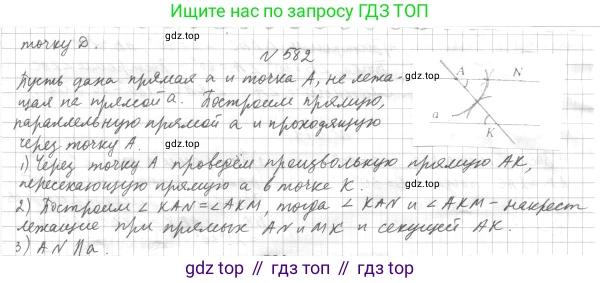 Ищите нас по запросу ГДЗ ТОП
точку D.
gdz.top
gdz.top
N 582
Пусть дана прямая а и точка А, не лежа-
щая на прямой а. Построим прямую,
параллельную прямой а и проходящую
через точку А.
A N
a K
gdz.top
gdz.top
1) Через точку А проведём произвольную прямую АК,
пересекающую прямую а в точке К.
2) Построим ∠ KAN = ∠AKM, тогда ∠ KAN и ∠ AKM - накрест
лежащие при прямых AN и MK и секущей AK.
3) AN || a.
gdz top // гдз топ // gdz top // гдз топ